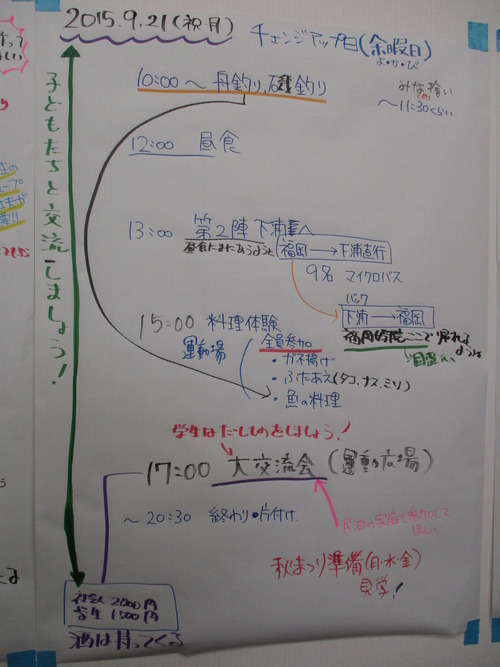 2015.9.21(祝・月) チェンジアップ日(余暇日)
よ・か・び
10:00〜 舟釣り、磯釣り
みな拾い
〜11:30くらい
12:00 昼食
13:00 第2陣 下浦へ
昼食にまにあうように 福岡→下浦直行
9名 マイクロバス
バック
下浦→福岡
15:00 料理体験
運動場
全員参加
・ガネ揚げ
・ぶたあえ(タコ、ナス、ミソ)
・魚の料理
学生はだしものをしましょう!
17:00 大交流会(運動広場)
〜20:30 終わり・片付け
民泊の家庭も参加して
ほしい
秋まつり準備(月・水・金)
見学!
子どもたちと交流しましょう!
社会人 2000円
学生 1500円
酒は持ってくる